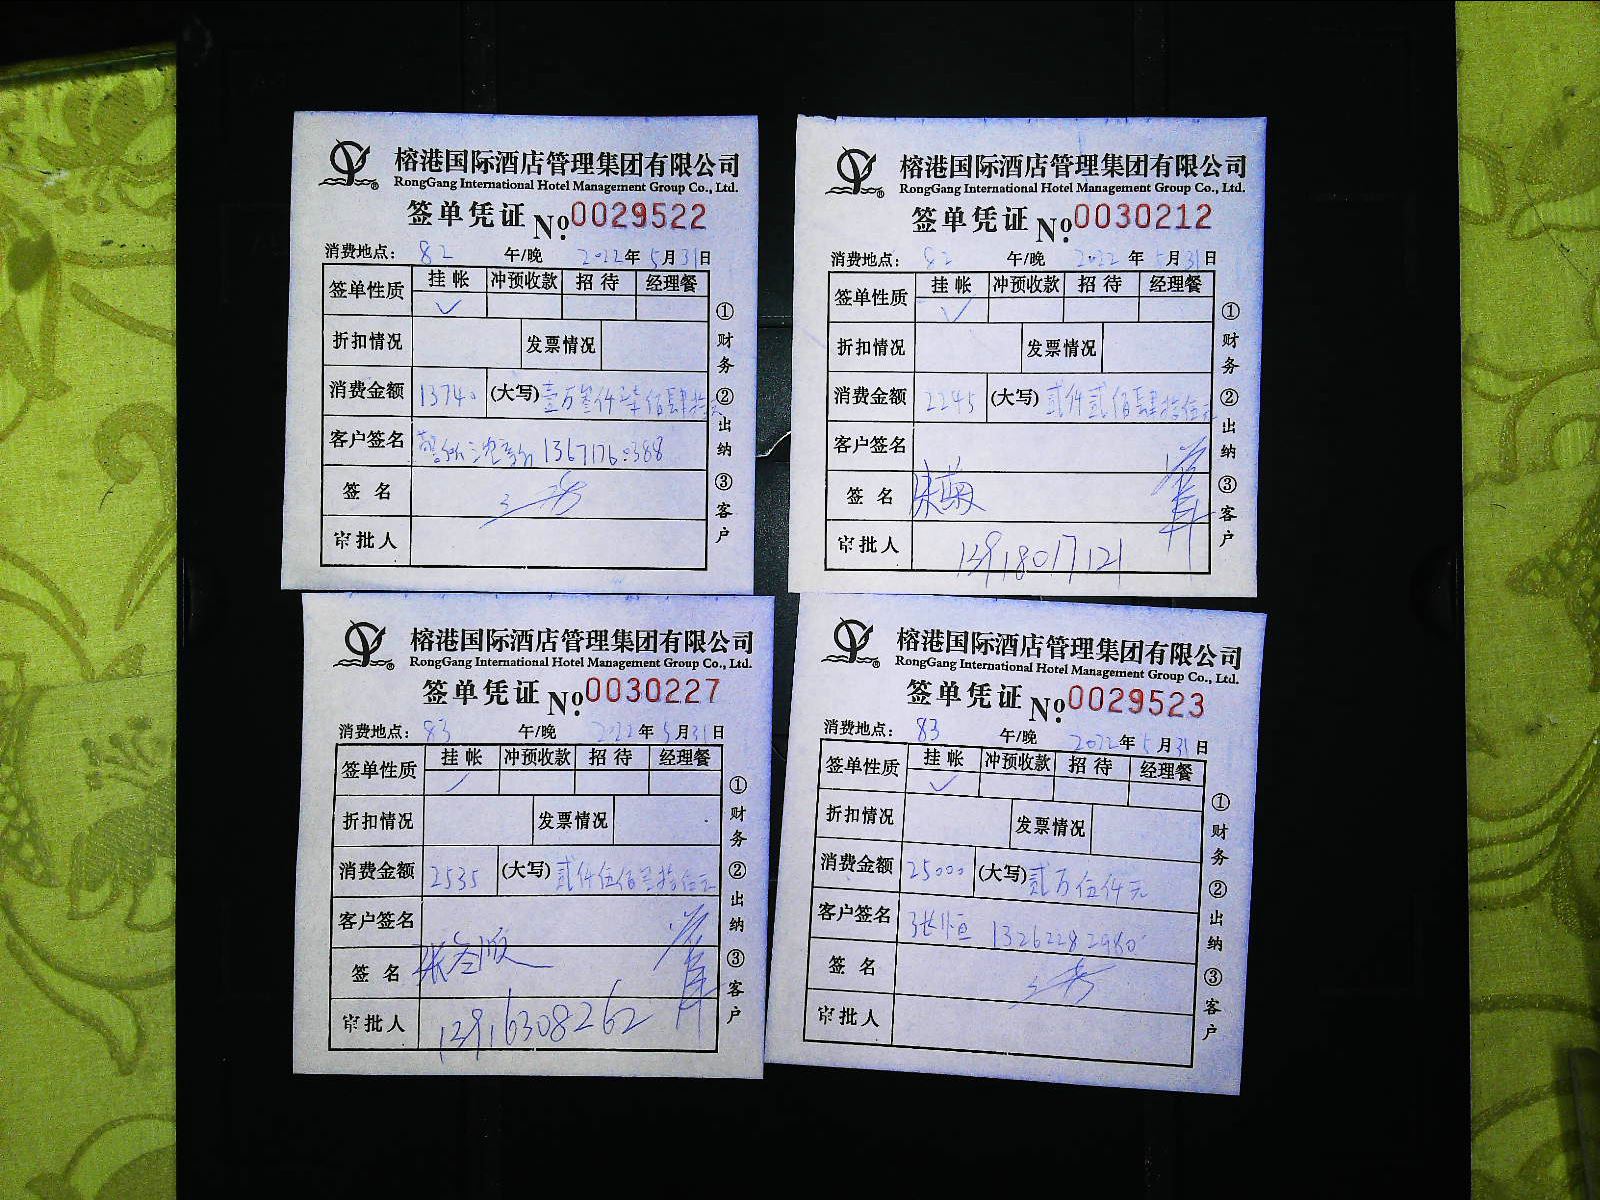 榕港国际酒店管理集团有限公司
RongGang International Hotel Management Group Co., Ltd.
签单凭证 №.0029522
消费地点: 82 午/晚 2022年5月31日
签单性质 挂帐 冲预收款 招待 经理餐
✓
折扣情况 发票情况
消费金额 13740 (大写)壹万叁仟柒佰肆拾元
客户签名 13671760388
签名
审批人
①财务 ②出纳 ③客户
榕港国际酒店管理集团有限公司
RongGang International Hotel Management Group Co., Ltd.
签单凭证 №.0030212
消费地点: 82 午/晚 2022年5月31日
签单性质 挂帐 冲预收款 招待 经理餐
✓
折扣情况 发票情况
消费金额 2245 (大写)贰仟贰佰肆拾伍元
客户签名
签名
审批人 13918017121
①财务 ②出纳 ③客户
榕港国际酒店管理集团有限公司
RongGang International Hotel Management Group Co., Ltd.
签单凭证 №.0030227
消费地点: 83 午/晚 2022年5月31日
签单性质 挂帐 冲预收款 招待 经理餐
✓
折扣情况 发票情况
消费金额 2535 (大写)贰仟伍佰叁拾伍元
客户签名
签名
审批人 13916308262
①财务 ②出纳 ③客户
榕港国际酒店管理集团有限公司
RongGang International Hotel Management Group Co., Ltd.
签单凭证 №.0029523
消费地点: 83 午/晚 2022年5月31日
签单性质 挂帐 冲预收款 招待 经理餐
✓
折扣情况 发票情况
消费金额 25000 (大写)贰万伍仟元
客户签名 张恒 13262282980
签名
审批人
①财务 ②出纳 ③客户